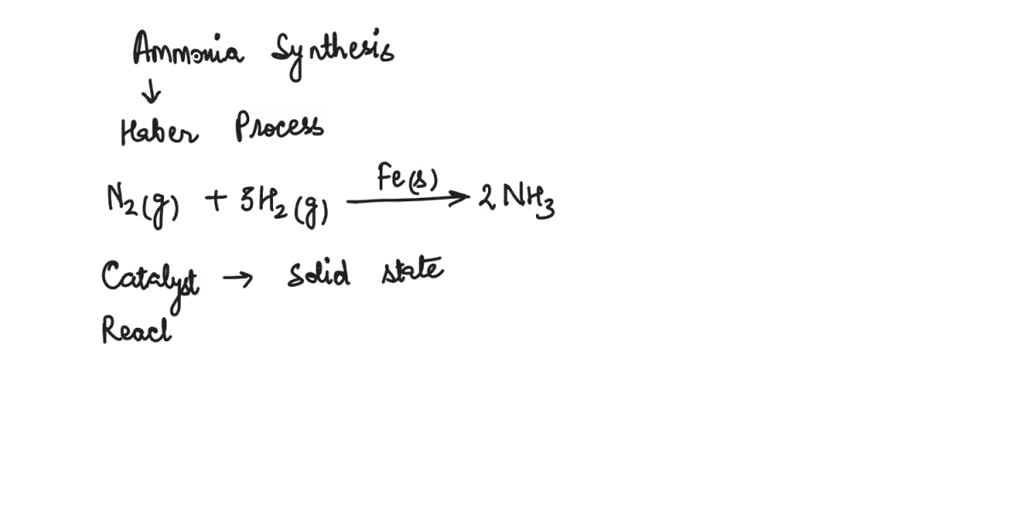 Ammonia Synthesis
↓
Haber Process
N₂(g) + 3H₂(g) —Fe(s)→ 2 NH₃
Catalyst → Solid state
Reac